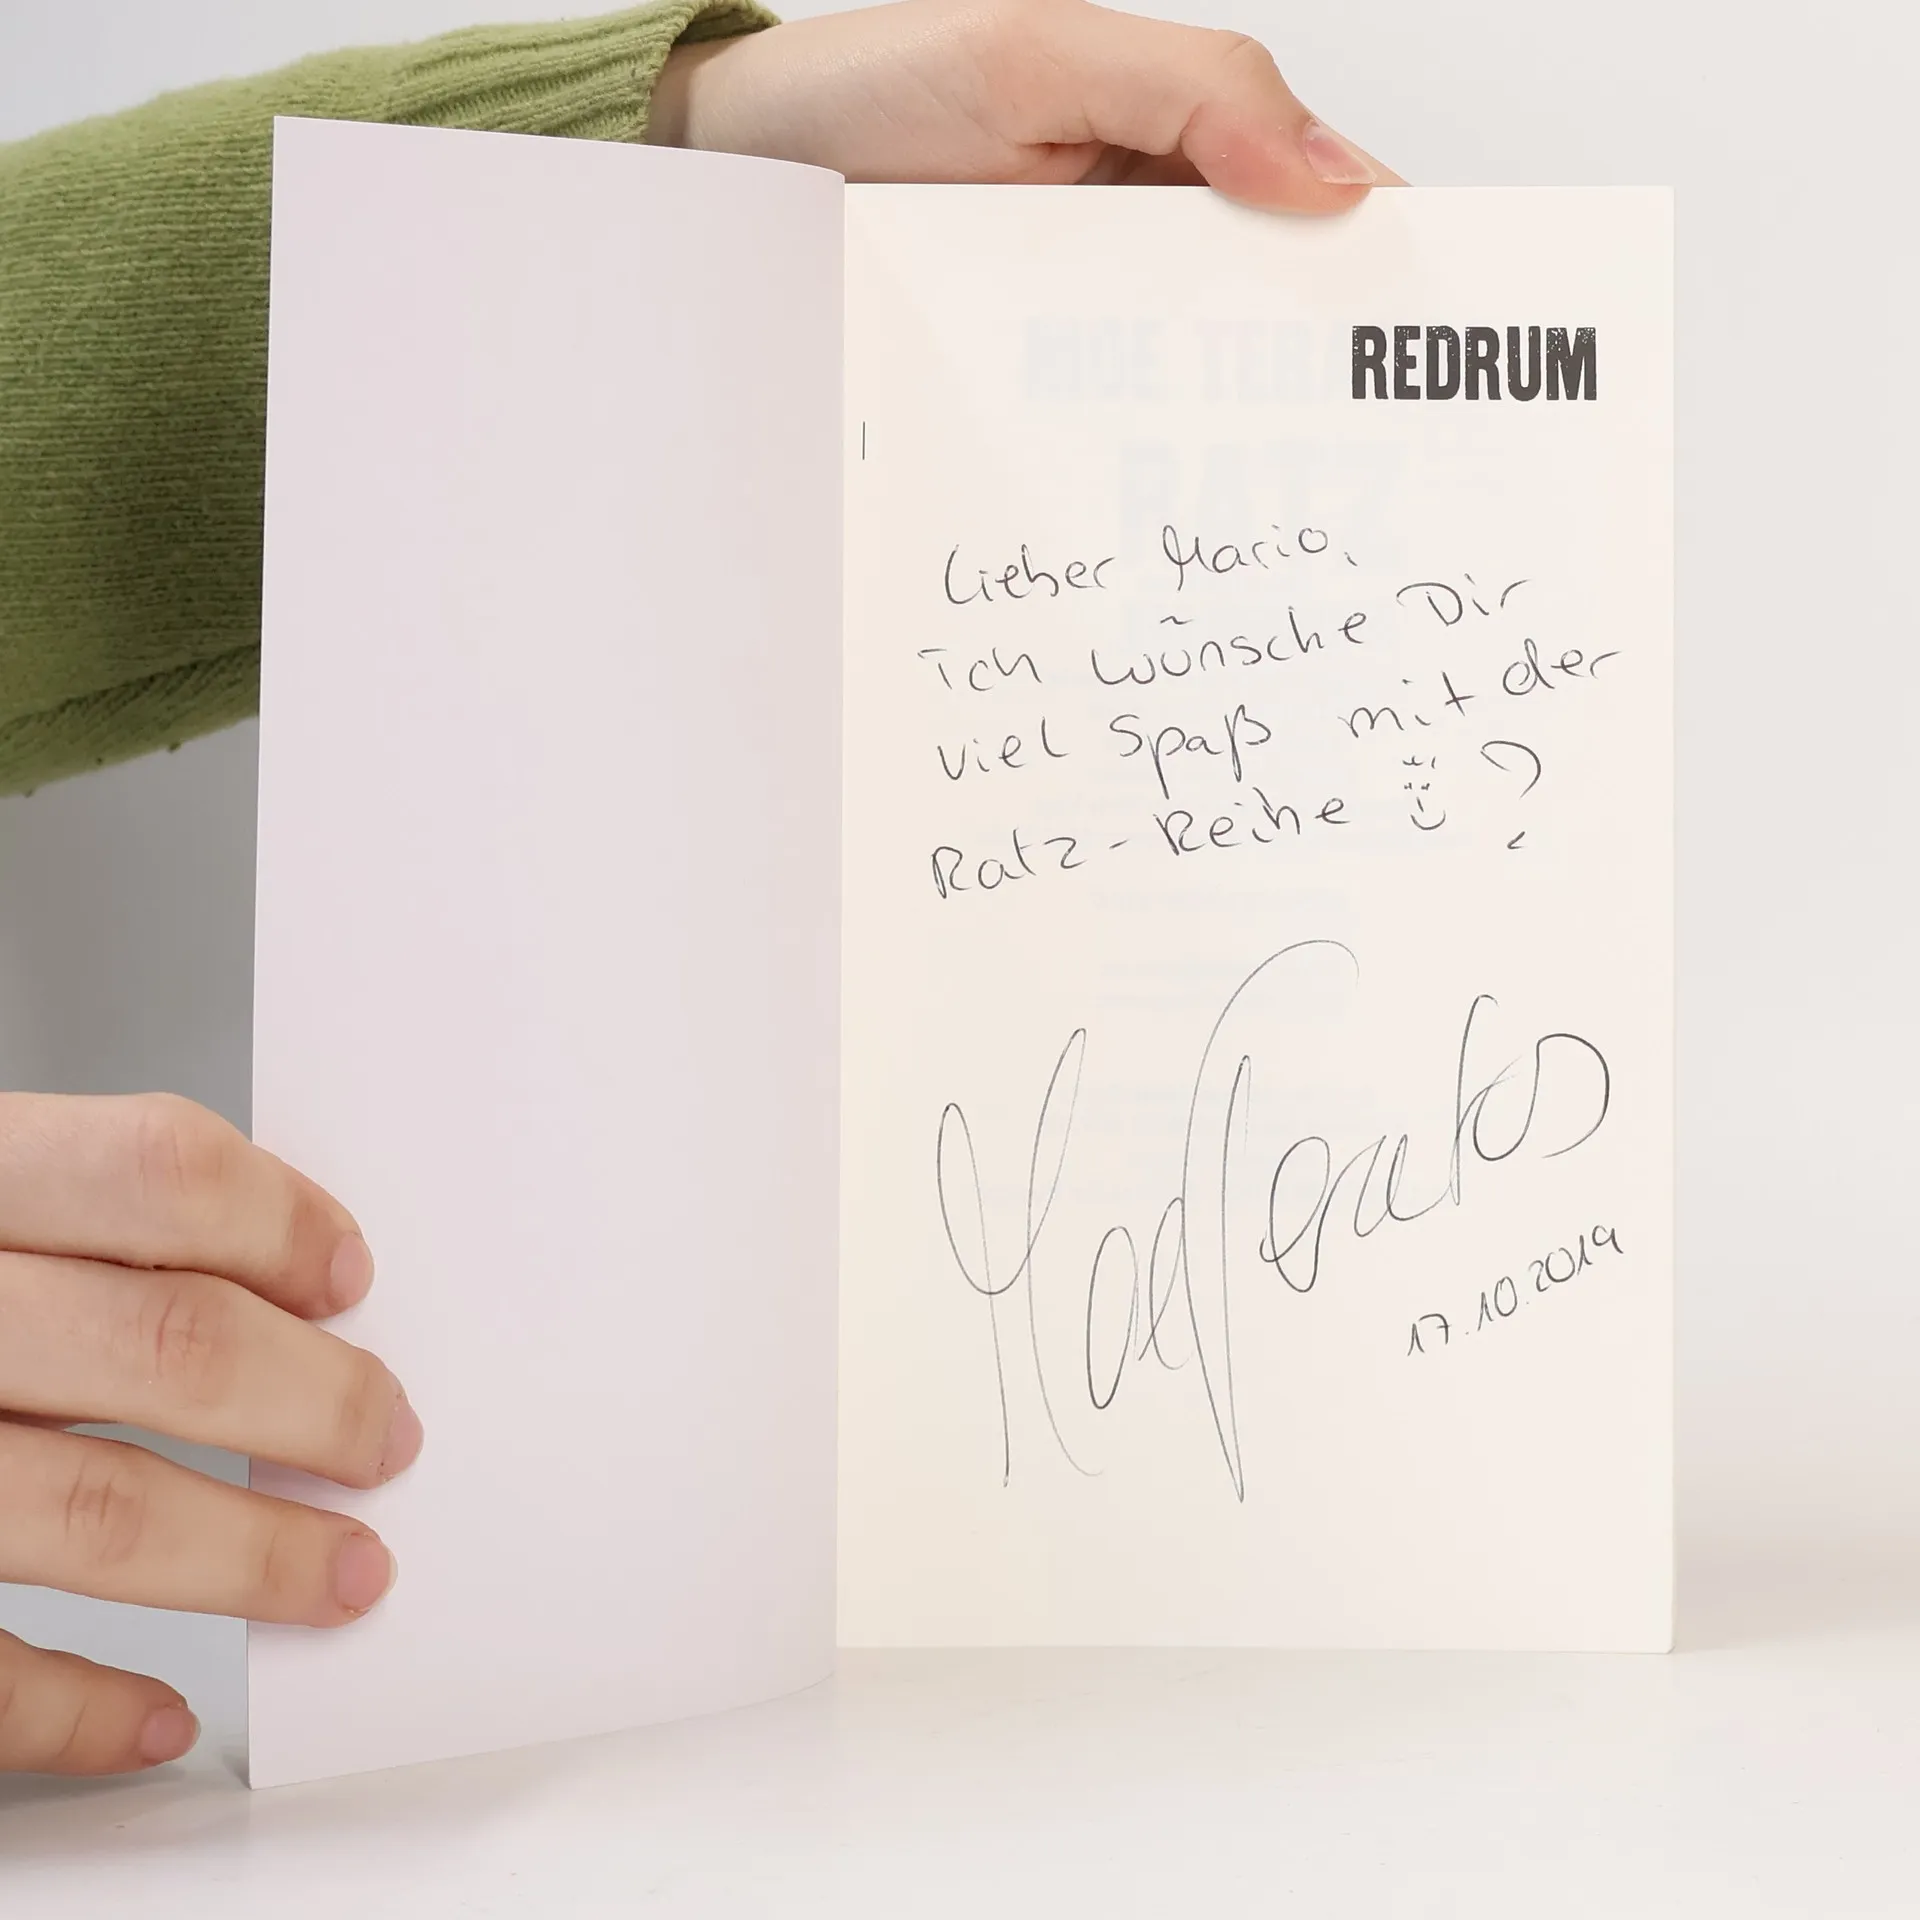 REDRUM
Lieber Mario,
ich wünsche Dir
viel Spaß mit der
Ratz-Reihe
17.10.2019